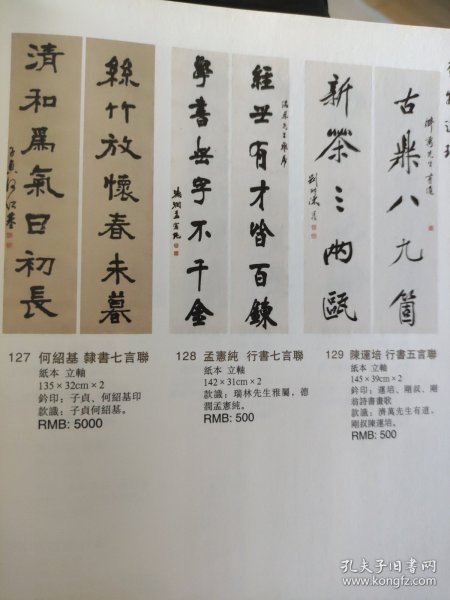 絲竹放懷春未暮
清和爲氣日初長
子貞何紹基
經世有才皆百鍊
瑞林先生雅屬
學書無字不千金
德潤孟憲純
古鼎八九箇
濟萬先生有道
新茶三兩甌
127 何紹基 隸書七言聯
紙本 立軸
135×32cm×2
鈐印：子貞、何紹基印
款識：子貞何紹基。
RMB: 5000
128 孟憲純 行書七言聯
紙本 立軸
142×31cm×2
款識：瑞林先生雅屬，德
潤孟憲純。
RMB: 500
129 陳運培 行書五言聯
紙本 立軸
145×39cm×2
鈐印：運培、剛叔、剛
翁詩書畫歌
款識：濟萬先生有道，
剛叔陳運培。
RMB: 500
孔夫子旧书网
www.kongfz.com